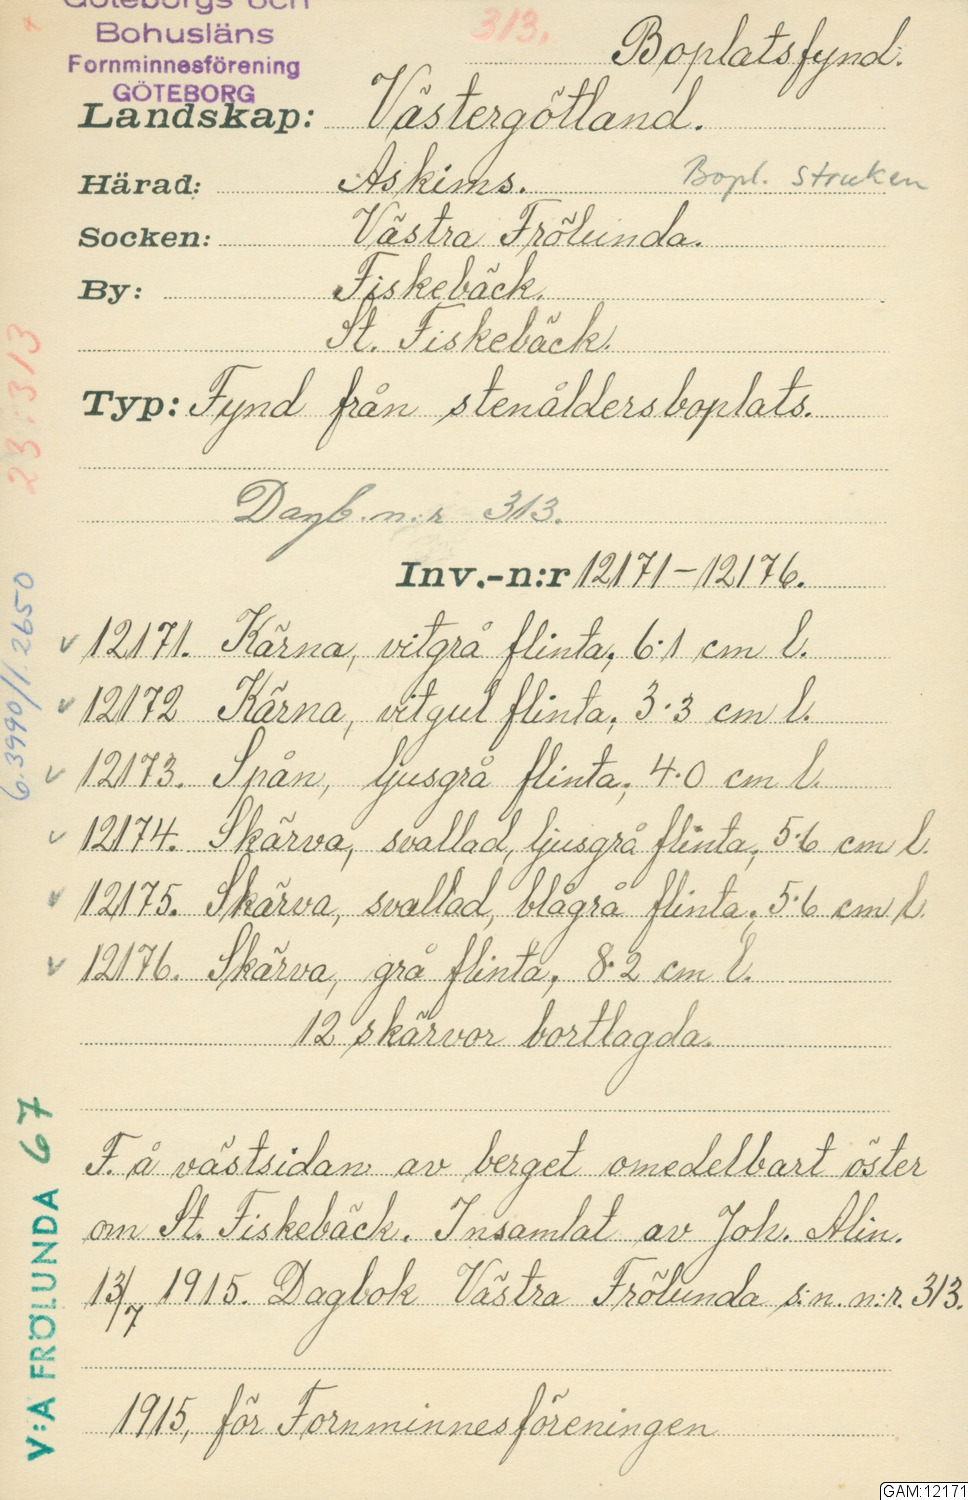 Göteborgs och
Bohusläns
Fornminnesförening
GÖTEBORG
313.
Boplatsfynd.
Landskap: Västergötland.
Härad: Askims.
Bopl. struken
Socken: Västra Frölunda.
By: Fiskebäck.
St. Fiskebäck.
Typ: Fynd från stenåldersboplats.
Dagb. n:r 313.
Inv.-n:r 12171-12176.
v 12171. Kärna, vitgrå flinta; 6·1 cm l.
v 12172 Kärna, vitgul flinta; 3·3 cm l.
v 12173. Spån, ljusgrå flinta; 4·0 cm l.
v 12174. Skärva, svallad, ljusgrå flinta; 5·6 cm l.
v 12175. Skärva, svallad, blågrå flinta; 5·6 cm l.
v 12176. Skärva, grå flinta; 8·2 cm l.
12 skärvor bortlagda.
F. å västsidan av berget omedelbart öster
om St. Fiskebäck. Insamlat av Joh. Alin.
13/7 1915. Dagbok Västra Frölunda s:n. n:r. 313.
1915, för Fornminnesföreningen
23:313
6.3990/1.2650
V:A FRÖLUNDA 67
GAM:12171